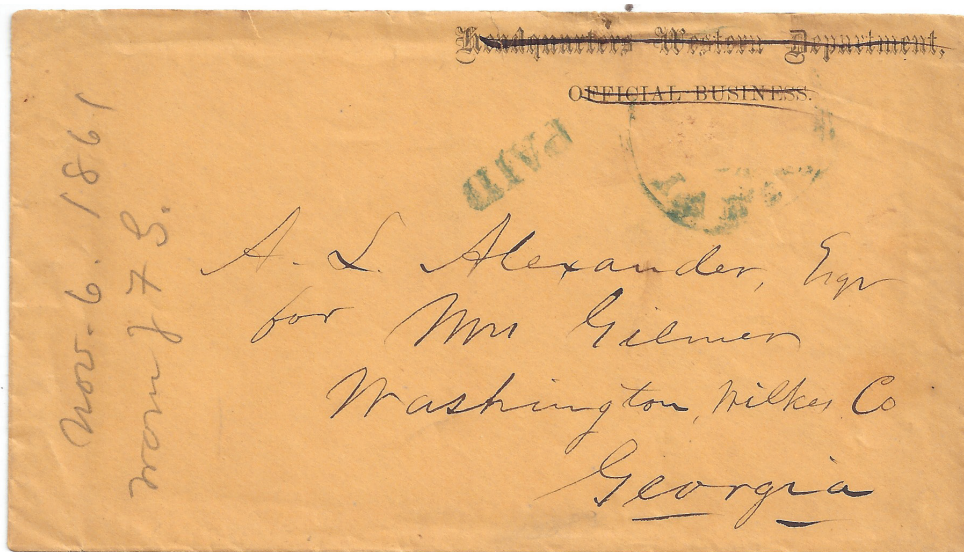 Headquarters Western Department,
OFFICIAL BUSINESS.
PAID
A. L. Alexander, Esqr
for Mrs Gilmer
Washington, Wilkes Co
Georgia
Nov- 6. 1861